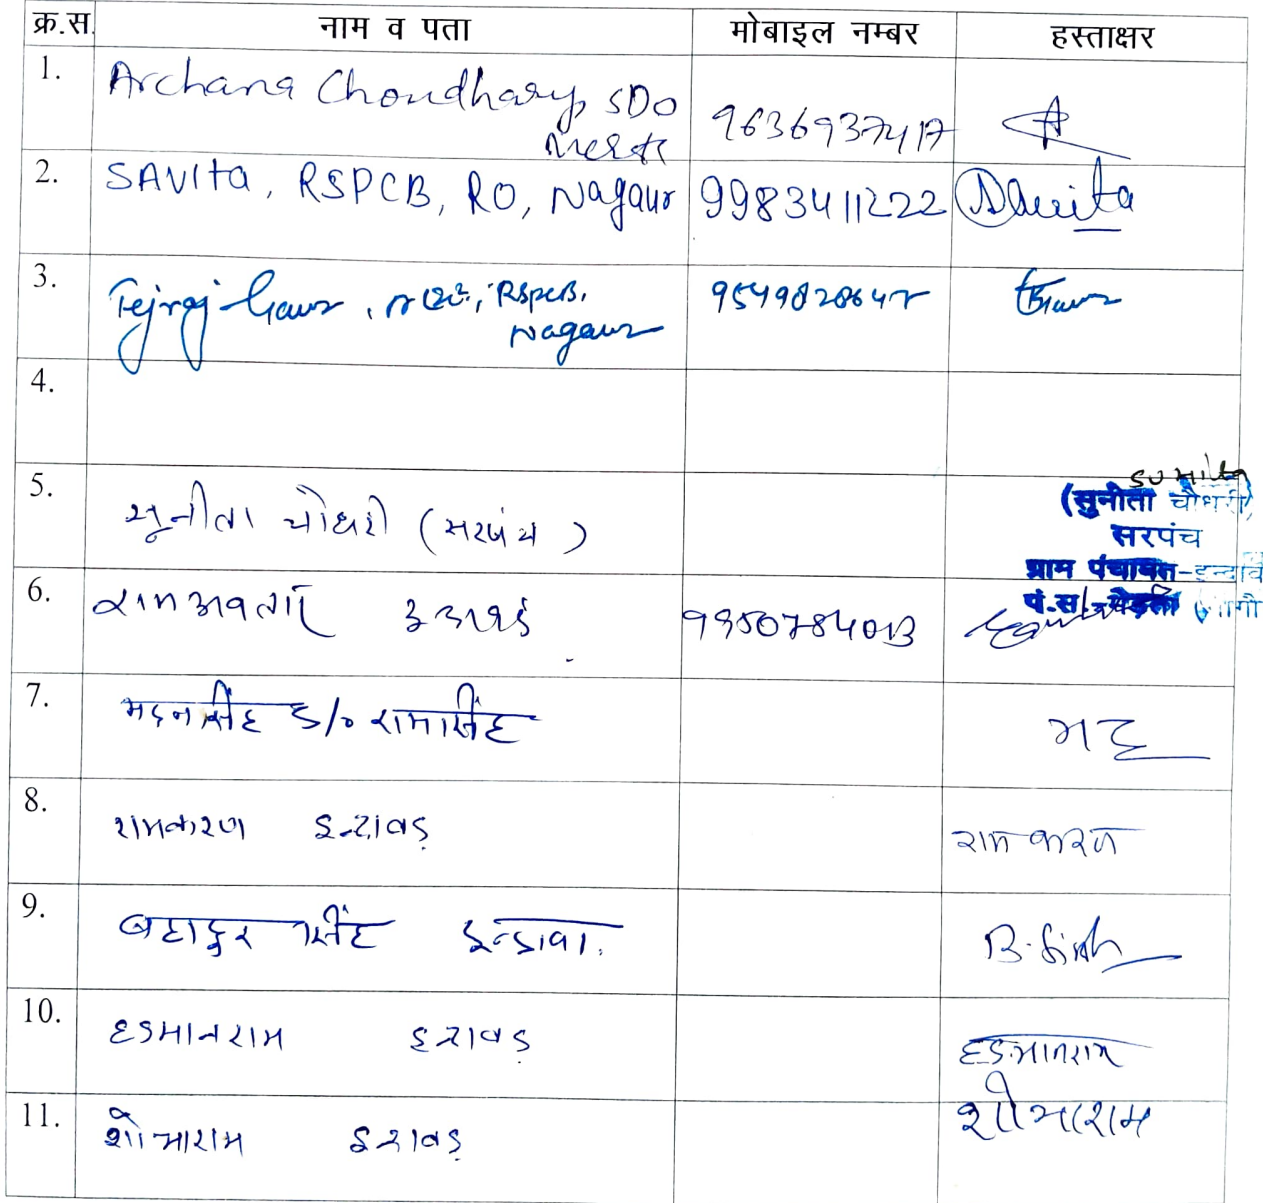 क्र.स. नाम व पता मोबाइल नम्बर हस्ताक्षर
1. Archana Choudhary, SDO 9636937417
Merta
2. SAVITA, RSPCB, RO, Nagaur 9983411222 Savita
3. Tejraj Gaur, RSPCB, 9549820647
Nagaur
4.
5. सुनीता चौधरी (सरपंच) Sunita
(सुनीता चौधरी)
सरपंच
ग्राम पंचायत-
पं.स. मेड़ता
6. रामअवतार 9950784013
7. मदनसिंह S/o रामसिंह
8. रामकरण इन्दावड़ रामकरण
9. बहादुर सिंह इन्डावा. B. Singh
10. हडमानराम इदावड़ हडमानराम
11. शोभाराम इदावड़ शोभाराम